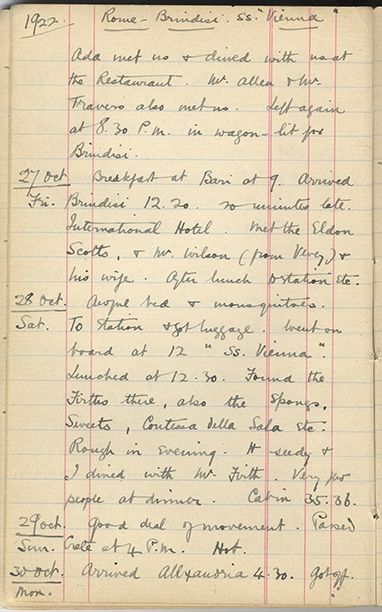 1922. Rome - Brindisi. SS. "Vienna"
Ada met us & dined with us at
the Restaurant. Mr. Allen & Mr.
Travers also met us. Left again
at 8.30 P.M. in wagon-lit for
Brindisi.
27 Oct Breakfast at Bari at 9. Arrived
Fri. Brindisi 12.20. 20 minutes late.
International Hotel. Met the Eldon
Scotts, & Mr. Wilson (from Vevey) &
his wife. After lunch to station etc.
28 Oct. Awful bed & mousquitoes.
Sat. To Station & got luggage. Went on
board at 12 "SS. Vienna".
Lunched at 12.30. Found the
Firths there, also the Spongs,
Sweets, Contessa della Sala etc.
Rough in evening. H- seedy &
I dined with Mr. Firth. Very few
people at dinner. Cabin 35.36.
29 Oct. Good deal of movement. Passed
Sun. Crete at 4 P.M. Hot.
30 Oct. Arrived Alexandria 4.30. Got off.
Mon.